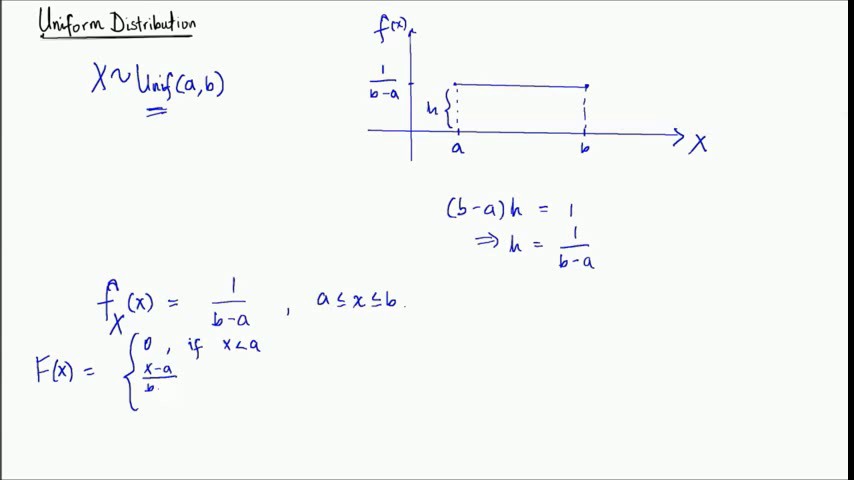 Uniform Distribution
X ~ Unif(a,b)
f(x)
1/(b-a)
h {
a b X
(b-a)h = 1
⇒ h = 1/(b-a)
f_X(x) = 1/(b-a) , a ≤ x ≤ b.
F(x) = { 0 , if x < a
x-a
b.